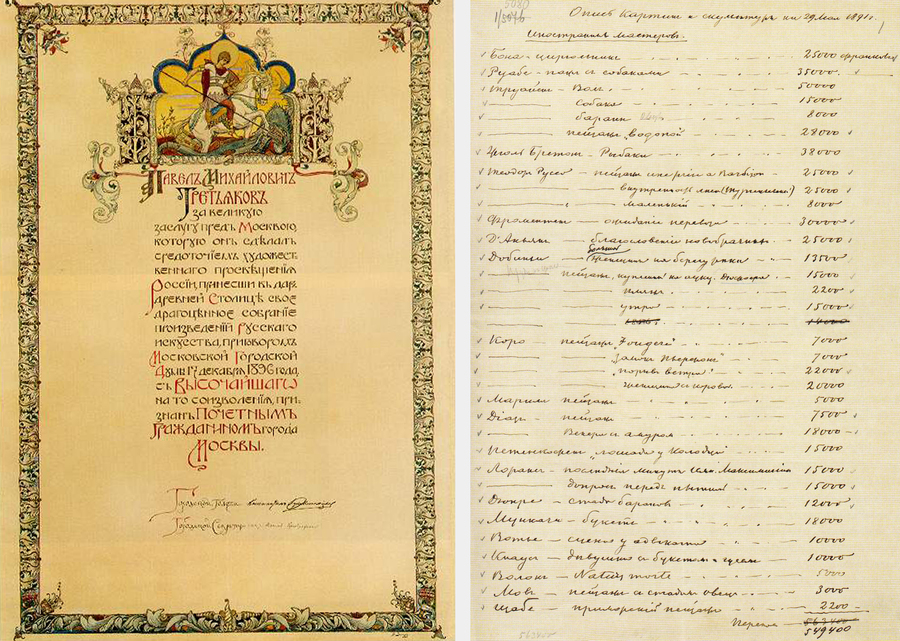 Павелъ Михайловичъ
Третьяковъ
за великую
заслугу предъ Москвою,
которую онъ сдѣлалъ
средоточiемъ художест
веннаго просвѣщенiя
Россiи, принеся въ даръ
древней столицѣ свое
драгоцѣнное собранiе
произведенiй русскаго
искусства, приговоромъ
Московской Городской
Думы 17 декабря 1896 года,
съ Высочайшаго
на то соизволенiя, при
знанъ Почетнымъ
Гражданиномъ города
Москвы.
Городской Голова
Городской Секретарь
1/5046
Опись Картинъ и скульптуръ на 29 Мая 1891 г.
Иностранныхъ мастеровъ.
Бона - 25000 франковъ
Руабе - пажъ съ собаками 35000
Труайонъ - Волъ 50000
собака 15000
бараны 8000
пейзажъ „водопой" 28000
Жюль Бретонъ - Рыбаки 38000
Теодоръ Руссо - пейзажъ Barbizon 25000
внутренность лѣса 25000
маленькiй 8000
Фромантенъ - ожиданiе перевоза 30000
Д'Аньянъ - благословенiе новобрачныхъ 25000
Добиньи - на берегу рѣки 13500
пейзажъ, купленъ на аукц. 15000
2200
утро 15000
Коро - пейзажъ 7000
„замокъ Пьерфонъ" 7000
„порывъ вѣтра" 22000
женщина съ коровой 20000
пейзажъ 5000
Дiазъ - пейзажъ 7500
Венера и амуръ 18000
Петенкофенъ „лошади у колодца" 15000
Лоранъ - послѣднiя минуты Имп. Максимилiана 15000
допросъ передъ пыткой 15000
Дюпре - стадо барановъ 12000
Мункачи - букетъ 18000
Вотье - сцена у адвоката 10000
Кнаусъ - дѣвушка съ букетомъ 10000
Волонъ - Nature morte 5000
Мовъ - пейзажъ со стадомъ овецъ 3000
приморскiй пейзажъ 2200
549400